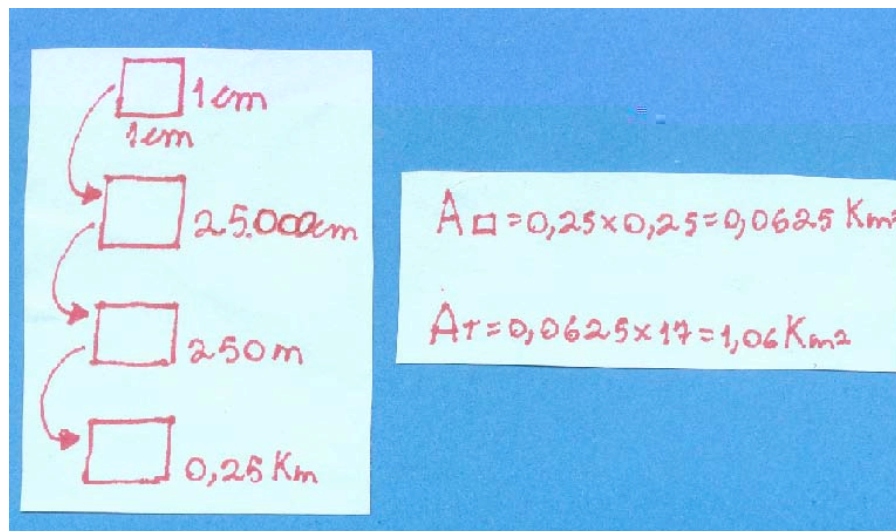 1cm
1cm
25.000cm
250m
0,25Km
A□=0,25×0,25=0,0625 Km²
AT=0,0625×17=1,06Km2